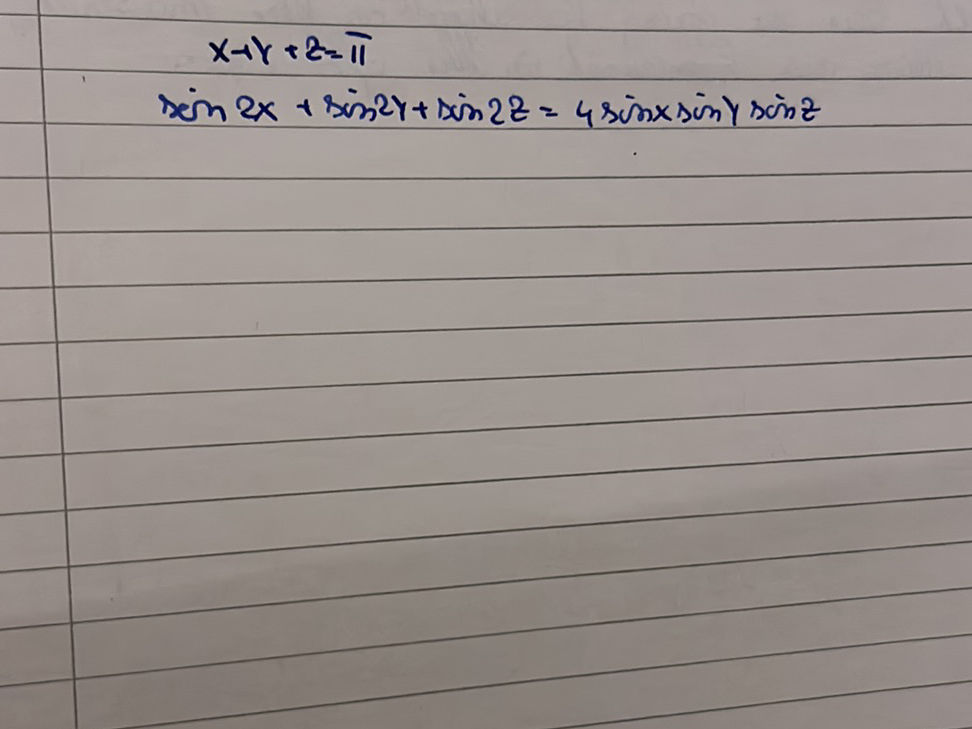 x+Y+Z=π
sin 2x + sin2Y + sin2Z = 4 sinx sinY sinZ